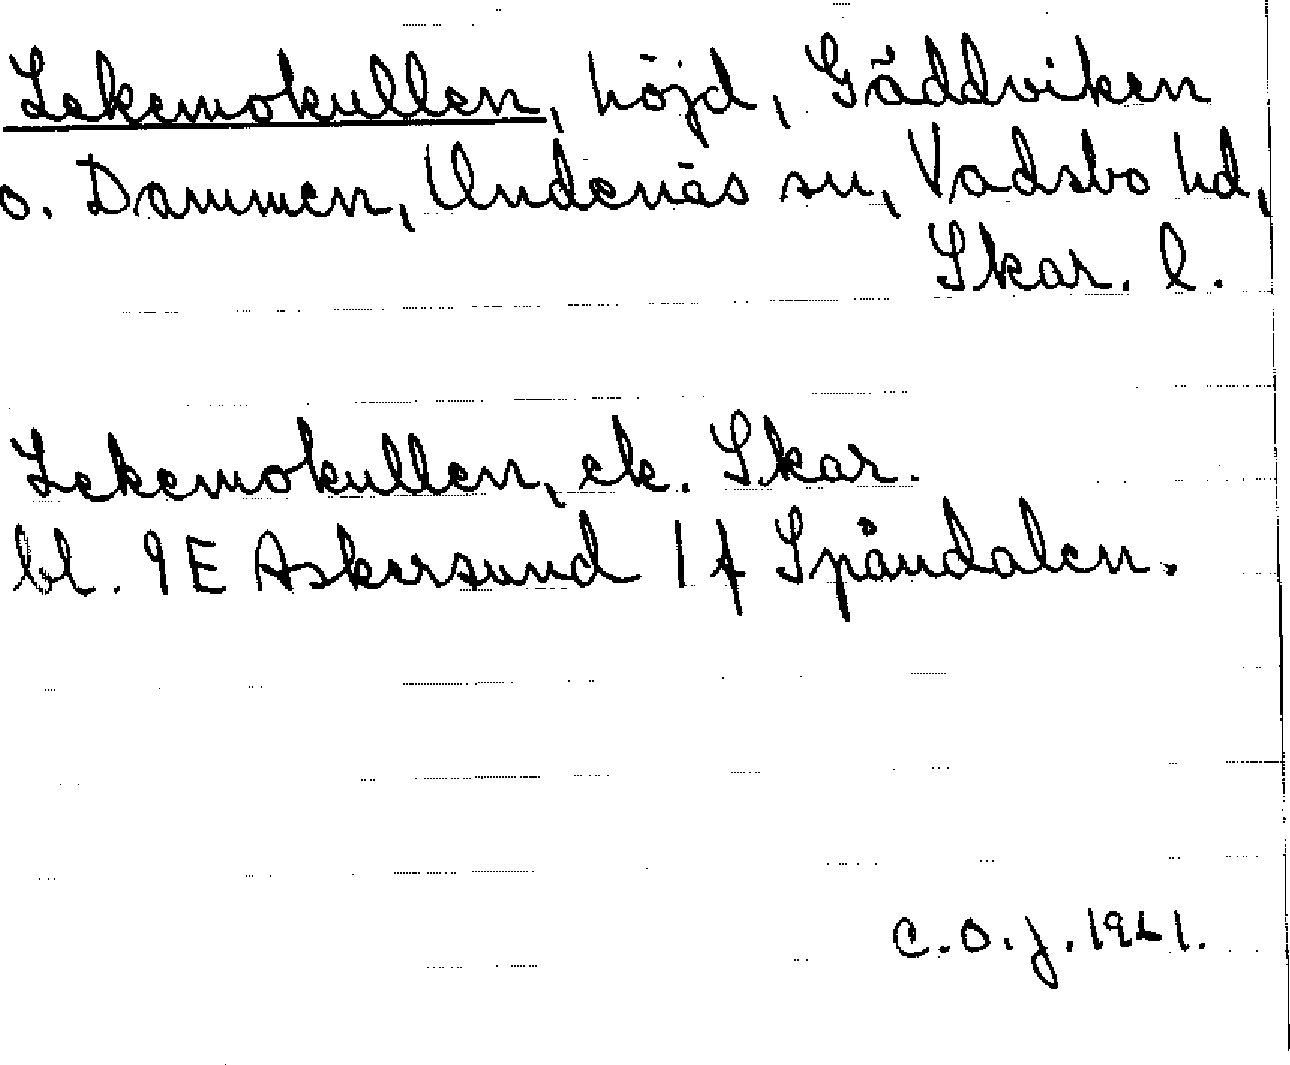 Lekemokullen, höjd, Gäddviken
o. Dammen, Undenäs sn, Vadsbo hd,
Skar. l.
Lekemokullen, ek. Skar.
bl. 9E Askersund 1 f Spåndalen.
C.O.J. 1961.